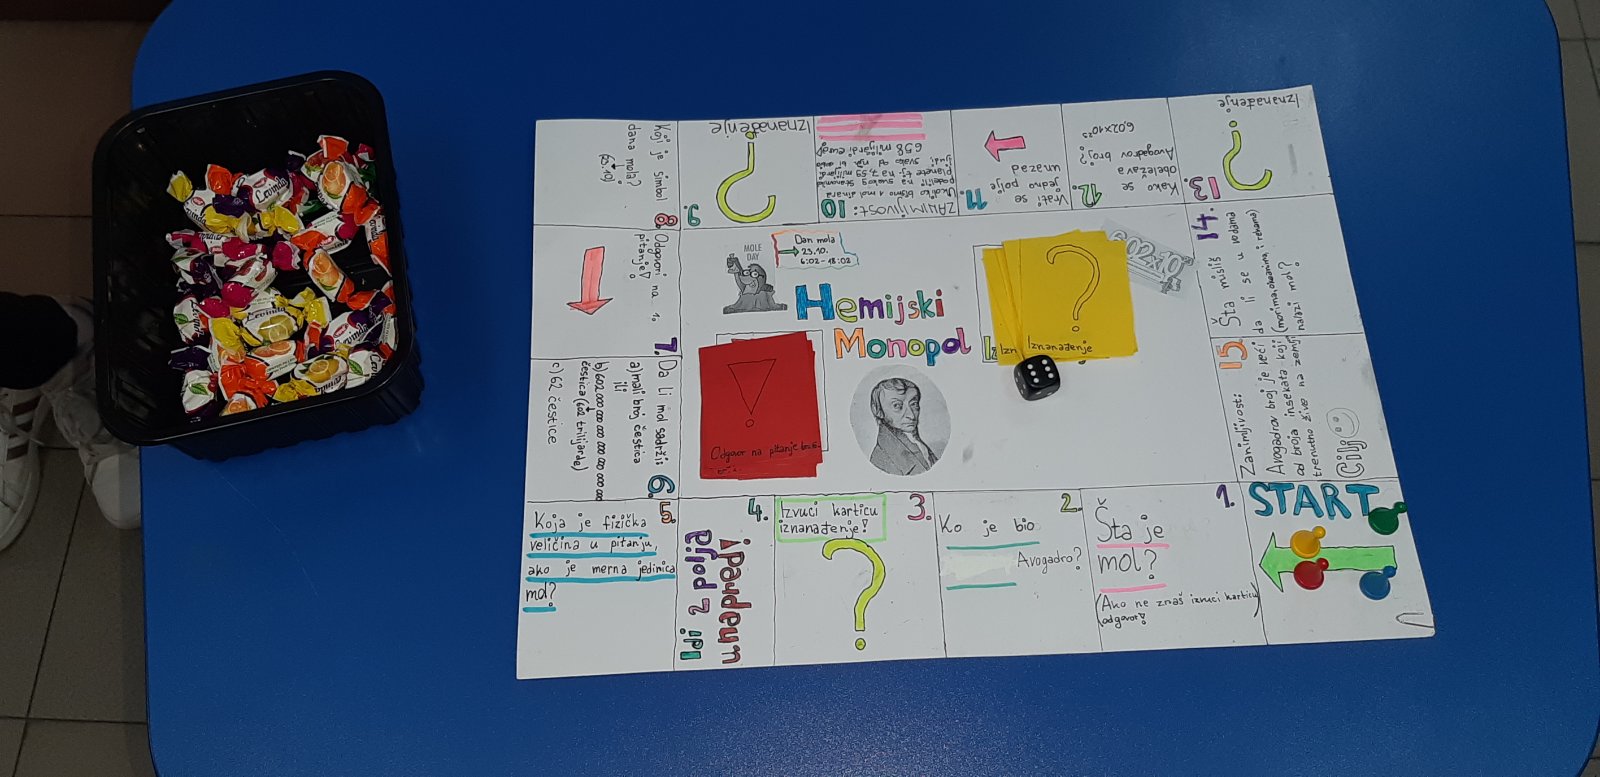 START
1.
Šta je
mol?
(Ako ne znaš izvuci karticu
odgovor!)
2.
Ko je bio
Avogadro?
3.
Izvuci karticu
iznanađenje!
?
4.
Idi 2 polja
unapred!
5.
Koja je fizička
veličina u pitanju,
ako je merna jedinica
mol?
6.
Da li mol sadrži:
a) mali broj čestica
ili
čestica (602 trilijarde)
c) 62 čestice
7.
Odgovori na 1.
pitanje!
8.
Koji je simbol
dana mola?
9.
Iznanađenje
?
10
ZANIMLJIVOST:
Ukoliko bismo 1 mol dinara
podelili na svakog stanovnika
planete tj. na 7,59 milijardi
ljudi, svako od njih bi dobio
658 milijardi evra!
11.
Vrati se
jedno polje
unazad
12.
Kako se
obeležava
Avogadrov broj?
6.02x10²³
13.
Iznanađenje
?
14.
Šta misliš
da li se u vodama
(morima, okeanima, i rekama)
nalazi mol?
15
Zanimljivost:
Avogadrov broj je veći
od broja insekata koji
trenutno živo na zemlji
Cilj
MOLE
DAY
Dan mola
23.10.
6:02-18:02
Hemijski
Monopol
602x10²³
?
Iznanađenje
Izn
!
Odgovor na pitanje
Levinda